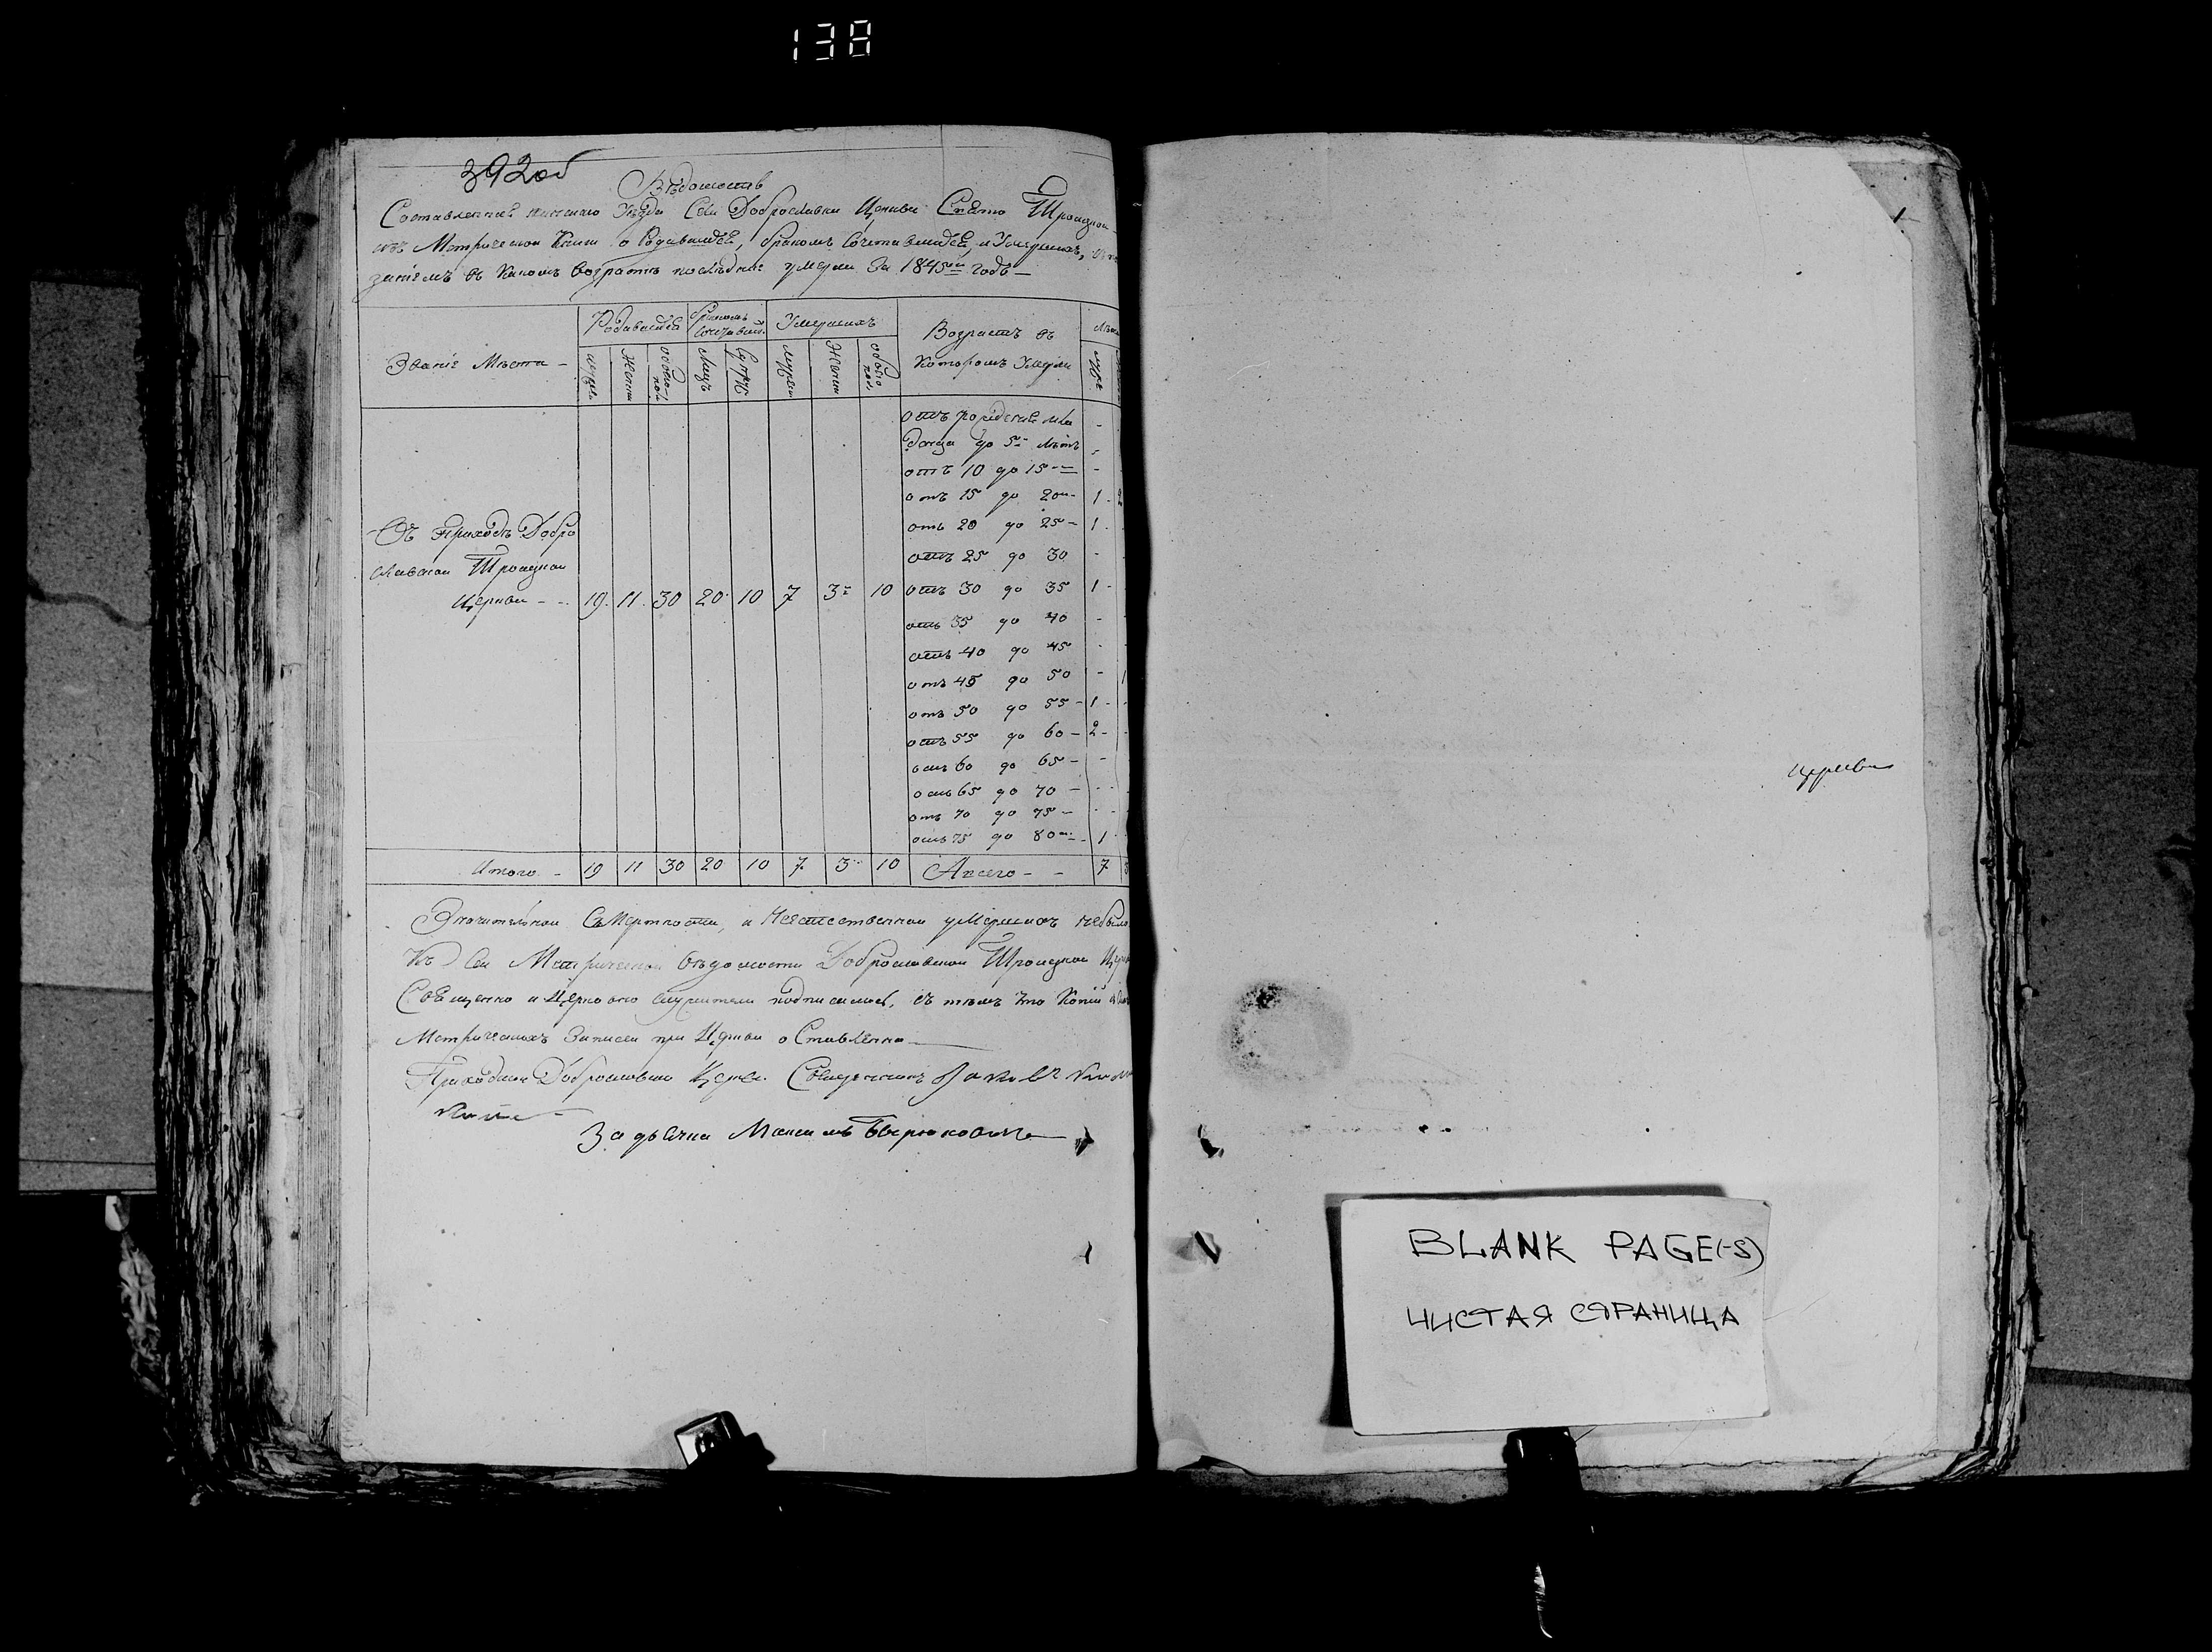 138
392об
Вѣдомость
Составленная Пинскаго Уѣзда Села Доброславки Церкви Свято Троицкой
изъ Метрической Книги о Родившихся, бракомъ Сочетавшихся, и Умершихъ,
заніемъ въ какомъ возрастѣ послѣдніе умерли За 1845й годъ —
Званіе Мѣста —
Родившихся
бракомъ Сочетавших.
Умершихъ
Возрастъ въ
которомъ Умерли
муже
Женск
обоего пол.
Лицъ
Супруж
мужеск
Женск
обоего пол.
муже
отъ рожденія мла -
денца до 5ти лѣтъ -
отъ 10 до 15 - -
отъ 15 до 20 - 1 -
отъ 20 до 25 - 1 -
отъ 25 до 30 -
отъ 30 до 35 1 -
отъ 35 до 40 -
отъ 40 до 45 -
отъ 45 до 50 - 1
отъ 50 до 55 - 1 -
отъ 55 до 60 - 2 -
отъ 60 до 65 - -
отъ 65 до 70 - -
отъ 70 до 75 - -
отъ 75 до 80 - 1
Въ Приходѣ Добро
славской Троицкой
Церкви - - 19 11 30 20 10 7 3 10
Итого - 19 11 30 20 10 7 3 10 Всего - - 7 3
Значительной Смертности, и Неестественной умершихъ небыло
Къ Сей Метрической вѣдомости Доброславской Троицкой
Священно и Церковно служители подписались, съ тѣмъ что Копія
Метрическихъ Записей при Церкви оставлена —
Приходской Доброславской Церкви Священникъ
За дьячка Максимъ
1
церкви
BLANK PAGE(-S)
ЧИСТАЯ СТРАНИЦА